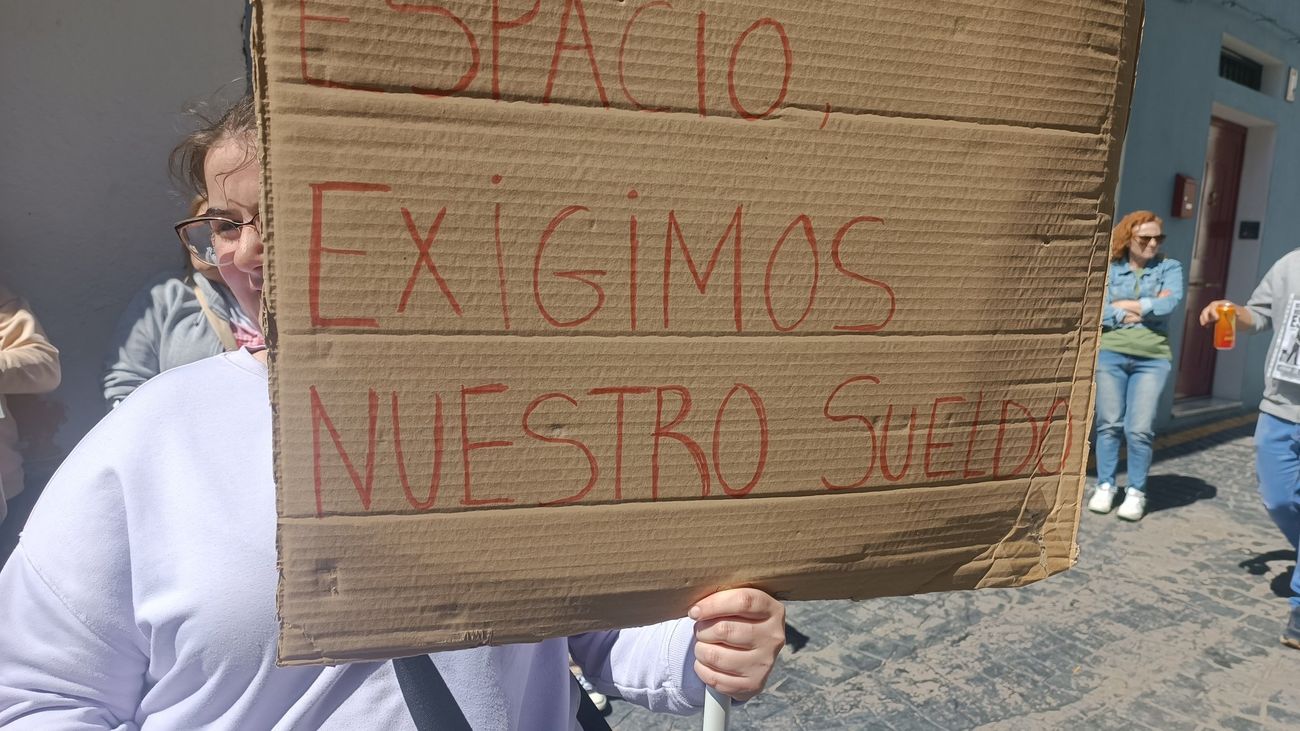 ESPACIO,
EXiGiMOS
NUESTRO SUELDO